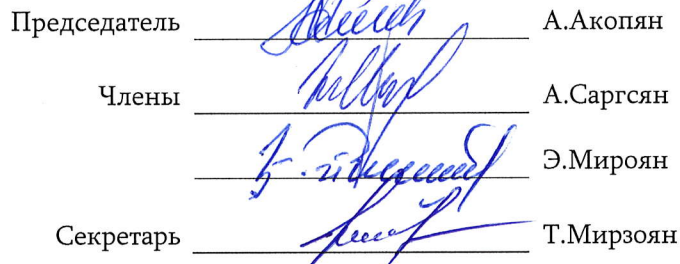 Председатель А.Акопян
Члены А.Саргсян
Э.Мироян
Секретарь Т.Мирзоян